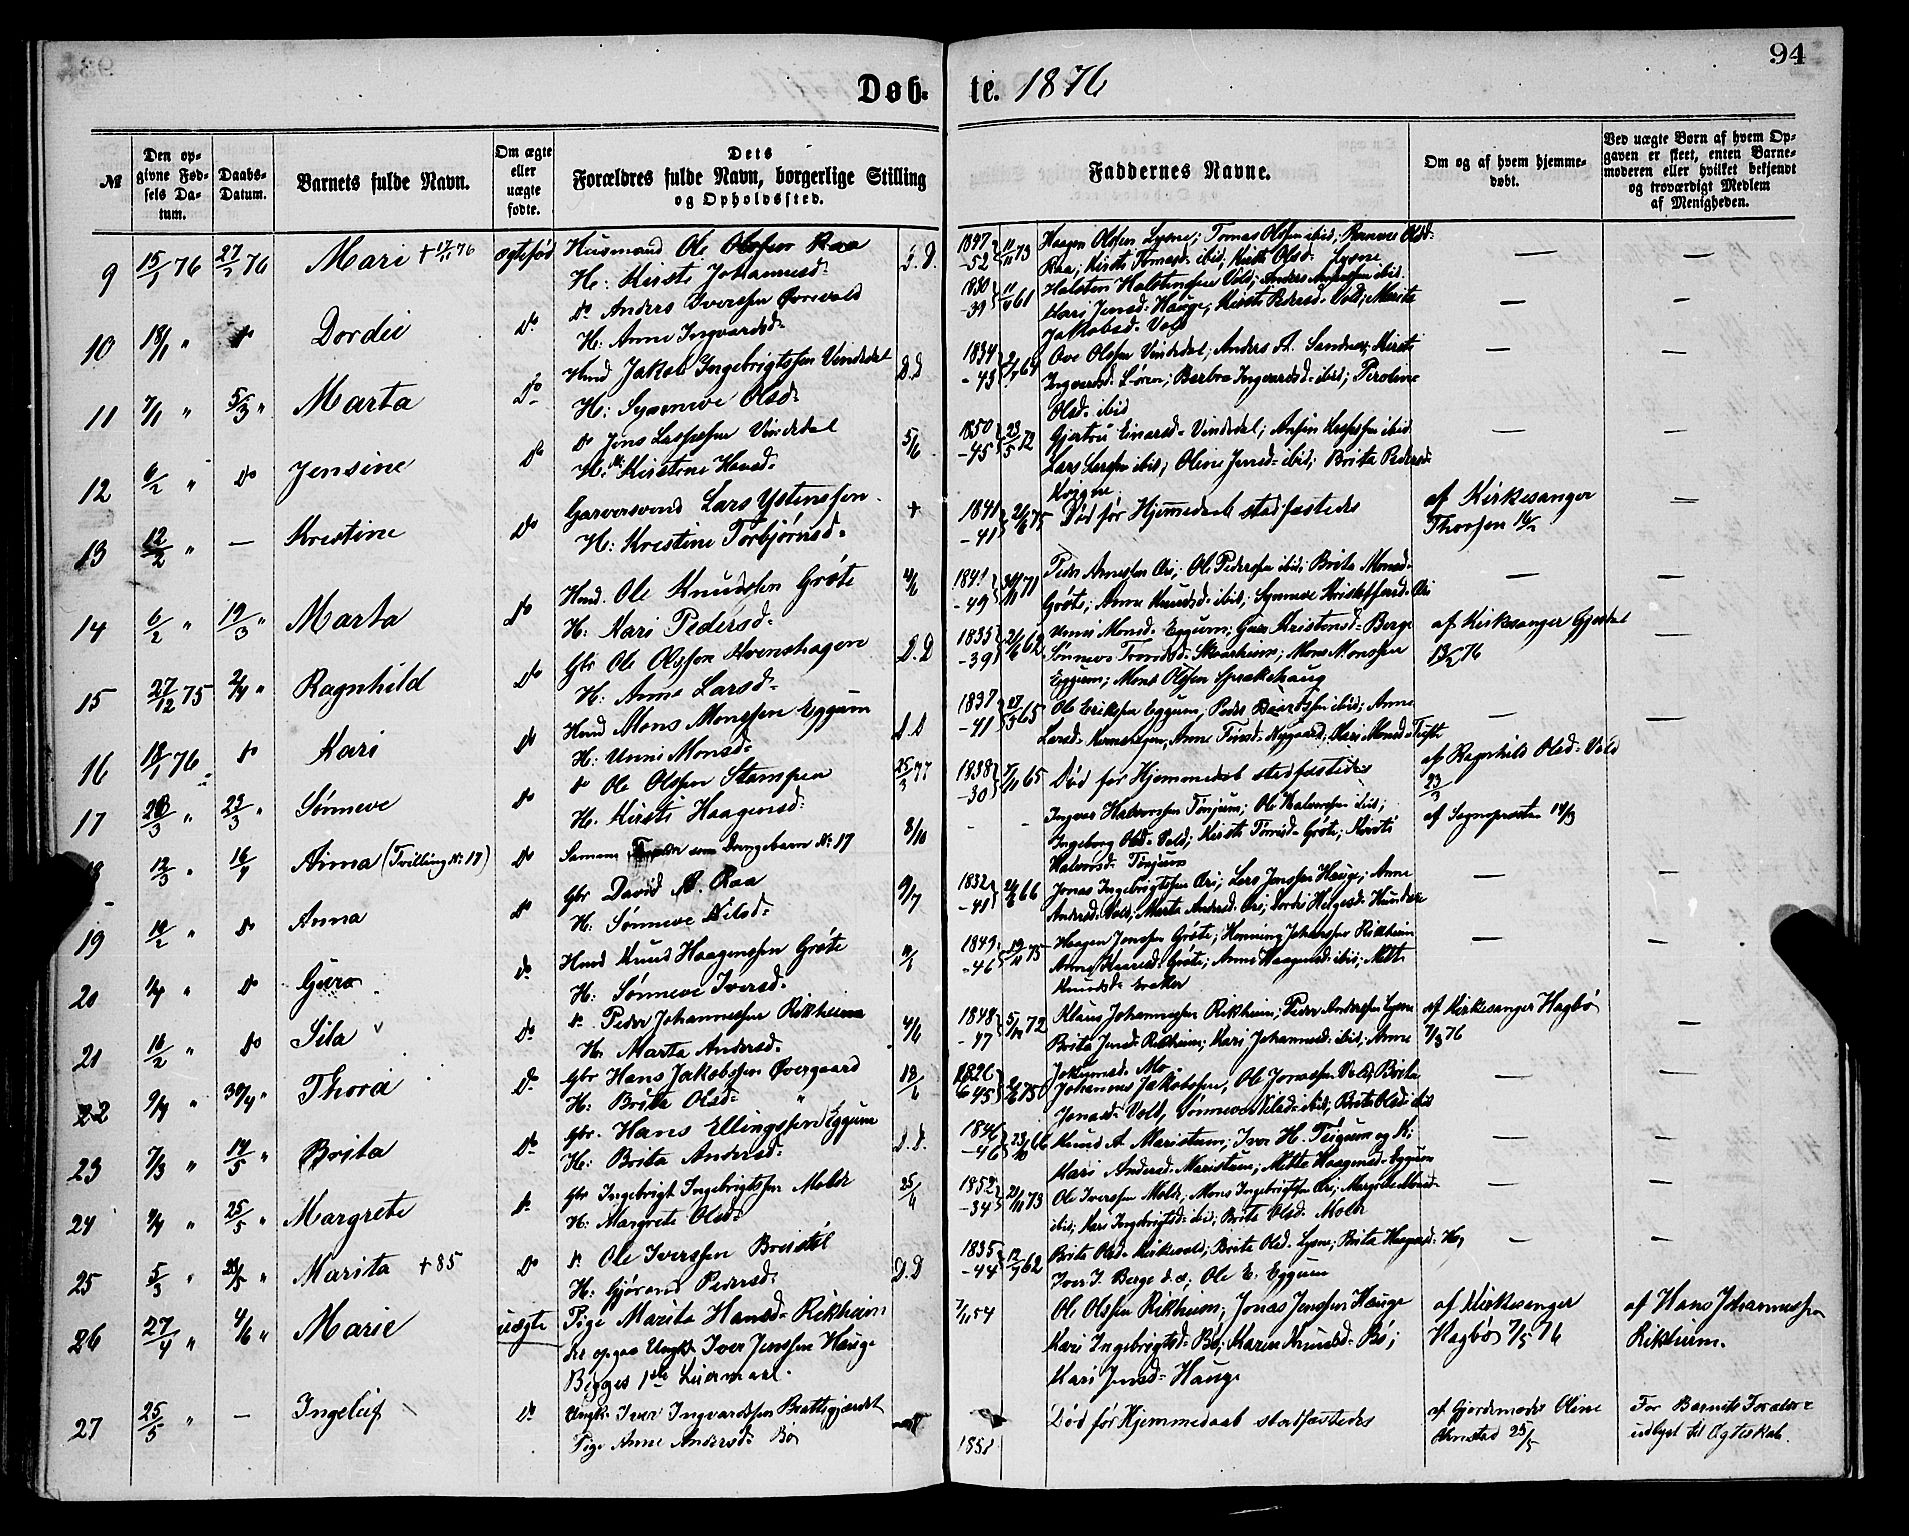 94
Døb-te. 1876
№
Den opgivne Fødsels Datum.
Daabs-Datum.
Barnets fulde Navn.
Om ægte eller uægte fødte.
Dets Forældres fulde Navn, borgerlige Stilling og Opholdssted.
Faddernes Navne.
Om og af hvem hjemmedøbt.
Ved uægte Børn af hvem Opgaven er skeet, enten Barnemoderen eller hvilket bekjendt og troværdigt Medlem af Menigheden.
9 15/1 76 27/2 76 Mari + 17/11 76 ægtefød Husmand Ole Olssen Raa
H: Kirsti Johannesd- D.D. 1847 -52 11/11 73
Haagen Olssen Lysne; Tomas Olssen ibid;
Raa; Kirsti Tomasd- ibid; Kirsti Olsd- Lysne —
10 18/1 " do Dordei Do Do Anders Iverssen Øvrevold
H: Anne Ingvardsd- 1830 -39 61
Halsten Halstenssen Vold; Anders Anderssen ibid
Kari Jensd- Hauge; Kirsti Pedersd- Vold; Marita
Jakobsd- Vold —
11 7/1 " 5/3 " Marta Do Hmd Jakob Ingebrigtssen Vindedal
H: Synneve Olsd- D.D 1834 -43
Ove Olssen Vindedal; Anders A. Sandnes; Kirsti
Ingvardsd- Løren; Barbra Ingvardsd- ibid; Peroline
Olsd- ibid —
12 6/2 " do Jensine Do Do Jens Lassessen Vindedal
H: Kirstine Hansd- 5/6 1850 -45 23/5 72
Gjertru Einarsd- Vindedal; ibid
Lars Larssen ibid; Oline Jensd- ibid; Brita Pedersd-
Kvigne —
13 12/2 " — Kristine Do Garversvend Lars Ystenssen
H: Kristine Torbjørnsd- + 1841 -41 75
Død før Hjemmedaab stadfæstedes
af Kirkesanger
Thorsen 16/2 —
14 6/2 " 19/3 " Marta Do Hmd. Ole Knudssen Grøte
H: Kari Pedersd- 4/6 -49 71
Peder Arnessen Øri; Ole Pederssen ibid; Brita Monsd-
Grøte; Anne Knudsd- ibid; Synneve Kristoffersd- Øri —
15 27/12 75 2/4 " Ragnhild Do Gbr Ole Olssen Kvenshagen
H: Anne Larsd- D.D 1835 -39 62
Unni Monsd- Eggum; Kristensd- Berge
Sønneve Trondsd- Skaarheim; Mons Monssen
Eggum; Mons Olssen Sprakehaug
af Kirkesanger Gjestal
13/2 76 —
16 18/1 76 do Kari Do Hmd Mons Monssen Eggum
H: Unni Monsd- D.D 1837 -41 65
Ole Erikssen Eggum; Peder Baardssen ibid; Anne
Larsd- Kvenshagen; Anne Nygaard; Kari Monsd- Tuft —
17 23/3 " 23/3 " Sønneve Do Do Ole Olssen Stampen
H: Kirsti Haagensd- 25/3 77 1838 -30 65
Død før Hjemmedaab stadfæstedes
af Ragnhild Olsd- Vold
23/3
18 12/3 " 16/4 Anna (Tvilling № 17) Do Samme som Drengebarn № 17 8/10 - -
Ingvar Halvorssen Tønjum; Ole Halvorssen ibid;
Ingeborg Olsd- Vold; Kirsti Grøte; Kirsti
Halvorsd- Tønjum
af Sogneprosten 14/3
19 19/2 " do Anna Do Gbr David A. Raa
H: Sønneve Nilsd- 9/7 1832 -41 66
Jonas Ingebrigtssen Øri; Lars Jenssen Hauge; Anne
Andersd- Vold; Marta Andersd- Øri; Helgesd- Hundere —
20 1/4 " do Guro Do Hmd Knud Haagenssen Grøte
H: Sønneve Iversd- 1849 -46 75
Haagen Jenssen Grøte; Henning Johanssen Rikheim
Anne Kaaresd- Grøte; Anne Haagensd- ibid; —
21 16/2 " do Sila Do Do Peder Johannessen Rikheim
H: Marta Andersd- 4/6 1848 -47 72
Klaus Johannessen Rikheim; Peder Anderssen Lysne
Brita Jensd- Rikheim; Kari Johannesd- ibid; Anne
Jokumsd- Mo
af Kirkesanger Hagbø
7/3 76 —
22 9/4 " 30/4 " Thora Do Gbr Hans Jakobssen Øvergaard
H: Brita Olsd- " 1826 -45
Johannes Jakobssen; Ole Jonassen Vold; Brita
Jonasd- Vold; Sønneve Nilsd- ibid; Brita Olsd- ibid —
23 7/3 " 14/5 " Brita Do Gbr. Hans Ellingssen Eggum
H: Brita Andersd- D.D. 1836 -46 23/10 66
Knud A. Maristuen; Iver H. Teigum og K;
Kari Andersd- Maristuen; Mette Haagensd- Eggum —
24 4/4 " 25/5 " Margrete Do Gbr Ingebrigt Ingebrigtssen Molde
H: Margrete Olsd- 25/4 1852 -34 73
Ole Iverssen Molde; Mons Ingebrigtssen Øri; Margrete
ibid; Kari Ingebrigtsd- ibid; Brita Olsd- Molde —
25 5/3 " 25/5 " Marita + 85 Do Do Ole Iverssen Breistøl
H: Gjørand Pedersd- D.D 1835 -44 12/7 62
Brita Olsd- Kirkevold; Brita Olsd- Lysne; Brita
Iver I. Berge d.æ; Ole E. Eggum —
26 27/4 " 4/6 " Marie uægte Pige Marita Hansd- Rikheim
Ungk. Iver Jenssen Hauge
Begges 1ste Leiermaal. 7/11 54
Ole Olssen Rikheim; Jonas Jenssen Hauge
Kari Ingebrigtsd- Bø; Karen Knudsd- Bø;
Kari Jensd- Hauge
af Kirkesanger
Hagbø 7/5 76
af Hans Johannessen
Rikheim.
27 25/5 " — Ingeleif Do Ungk. Iver Ingvardssen Brattegjerdet
Pige Anne Andersd- Bø 1851
Død før Hjemmedaab stadfæstedes
af Gjordemoder Oline
25/5
For Barnets Forældre
udlyst til Ægteskab.